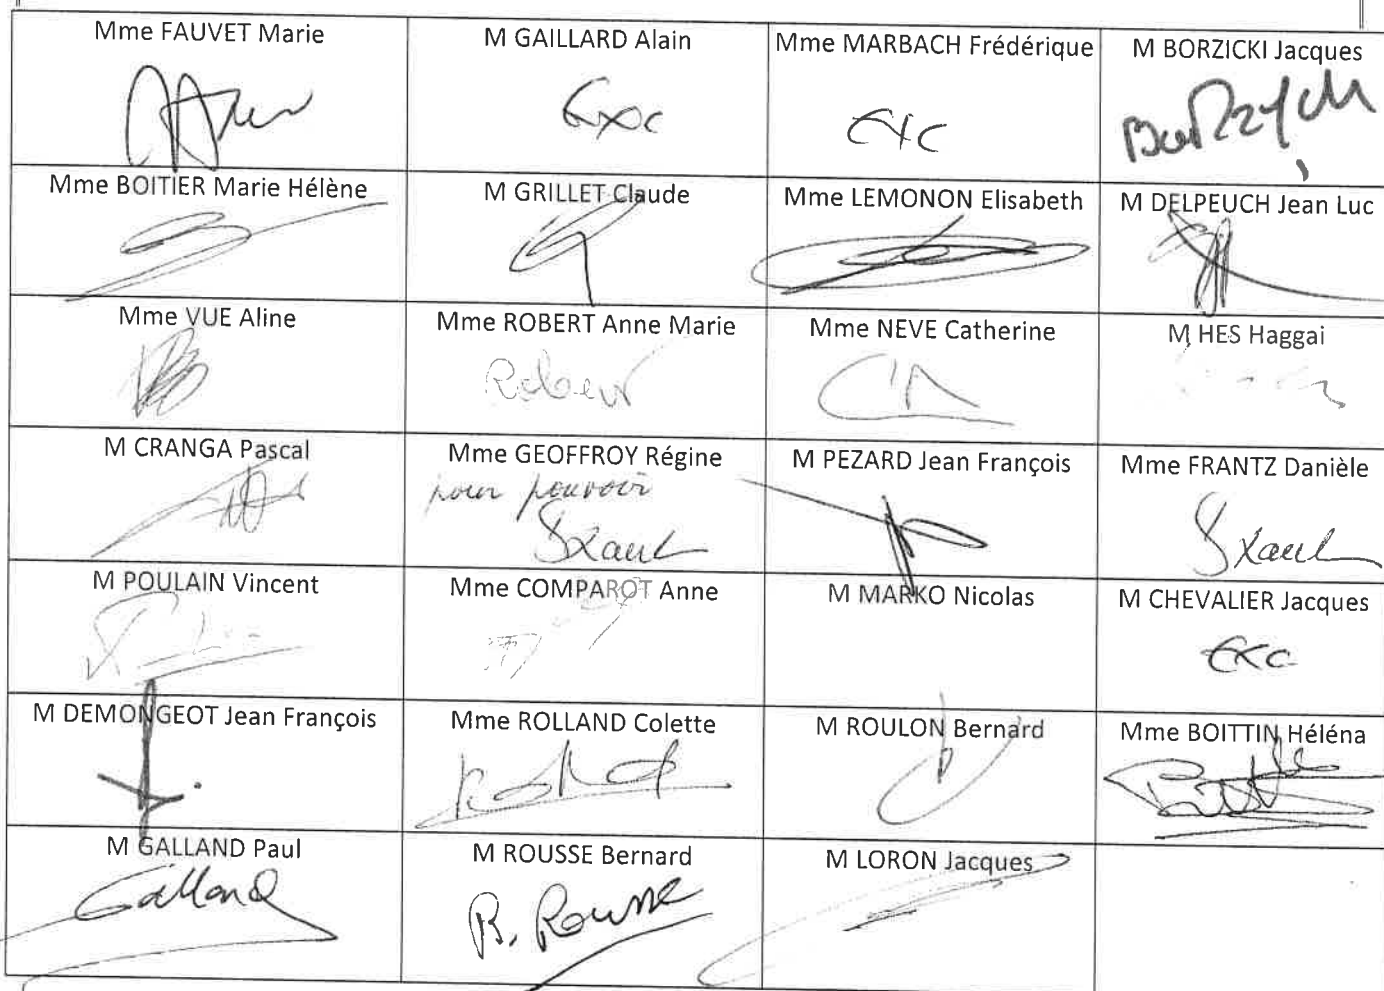 Mme FAUVET Marie
M GAILLARD Alain
Exc
Mme MARBACH Frédérique
Exc
M BORZICKI Jacques
Mme BOITIER Marie Hélène
M GRILLET Claude
Mme LEMONON Elisabeth
M DELPEUCH Jean Luc
Mme VUE Aline
Mme ROBERT Anne Marie
Robert
Mme NEVE Catherine
M HES Haggai
M CRANGA Pascal
Mme GEOFFROY Régine
pour pouvoir
M PEZARD Jean François
Mme FRANTZ Danièle
M POULAIN Vincent
Mme COMPAROT Anne
M MARKO Nicolas
M CHEVALIER Jacques
Exc
M DEMONGEOT Jean François
Mme ROLLAND Colette
M ROULON Bernard
Mme BOITTIN Héléna
M GALLAND Paul
Galland
M ROUSSE Bernard
B. Rousse
M LORON Jacques